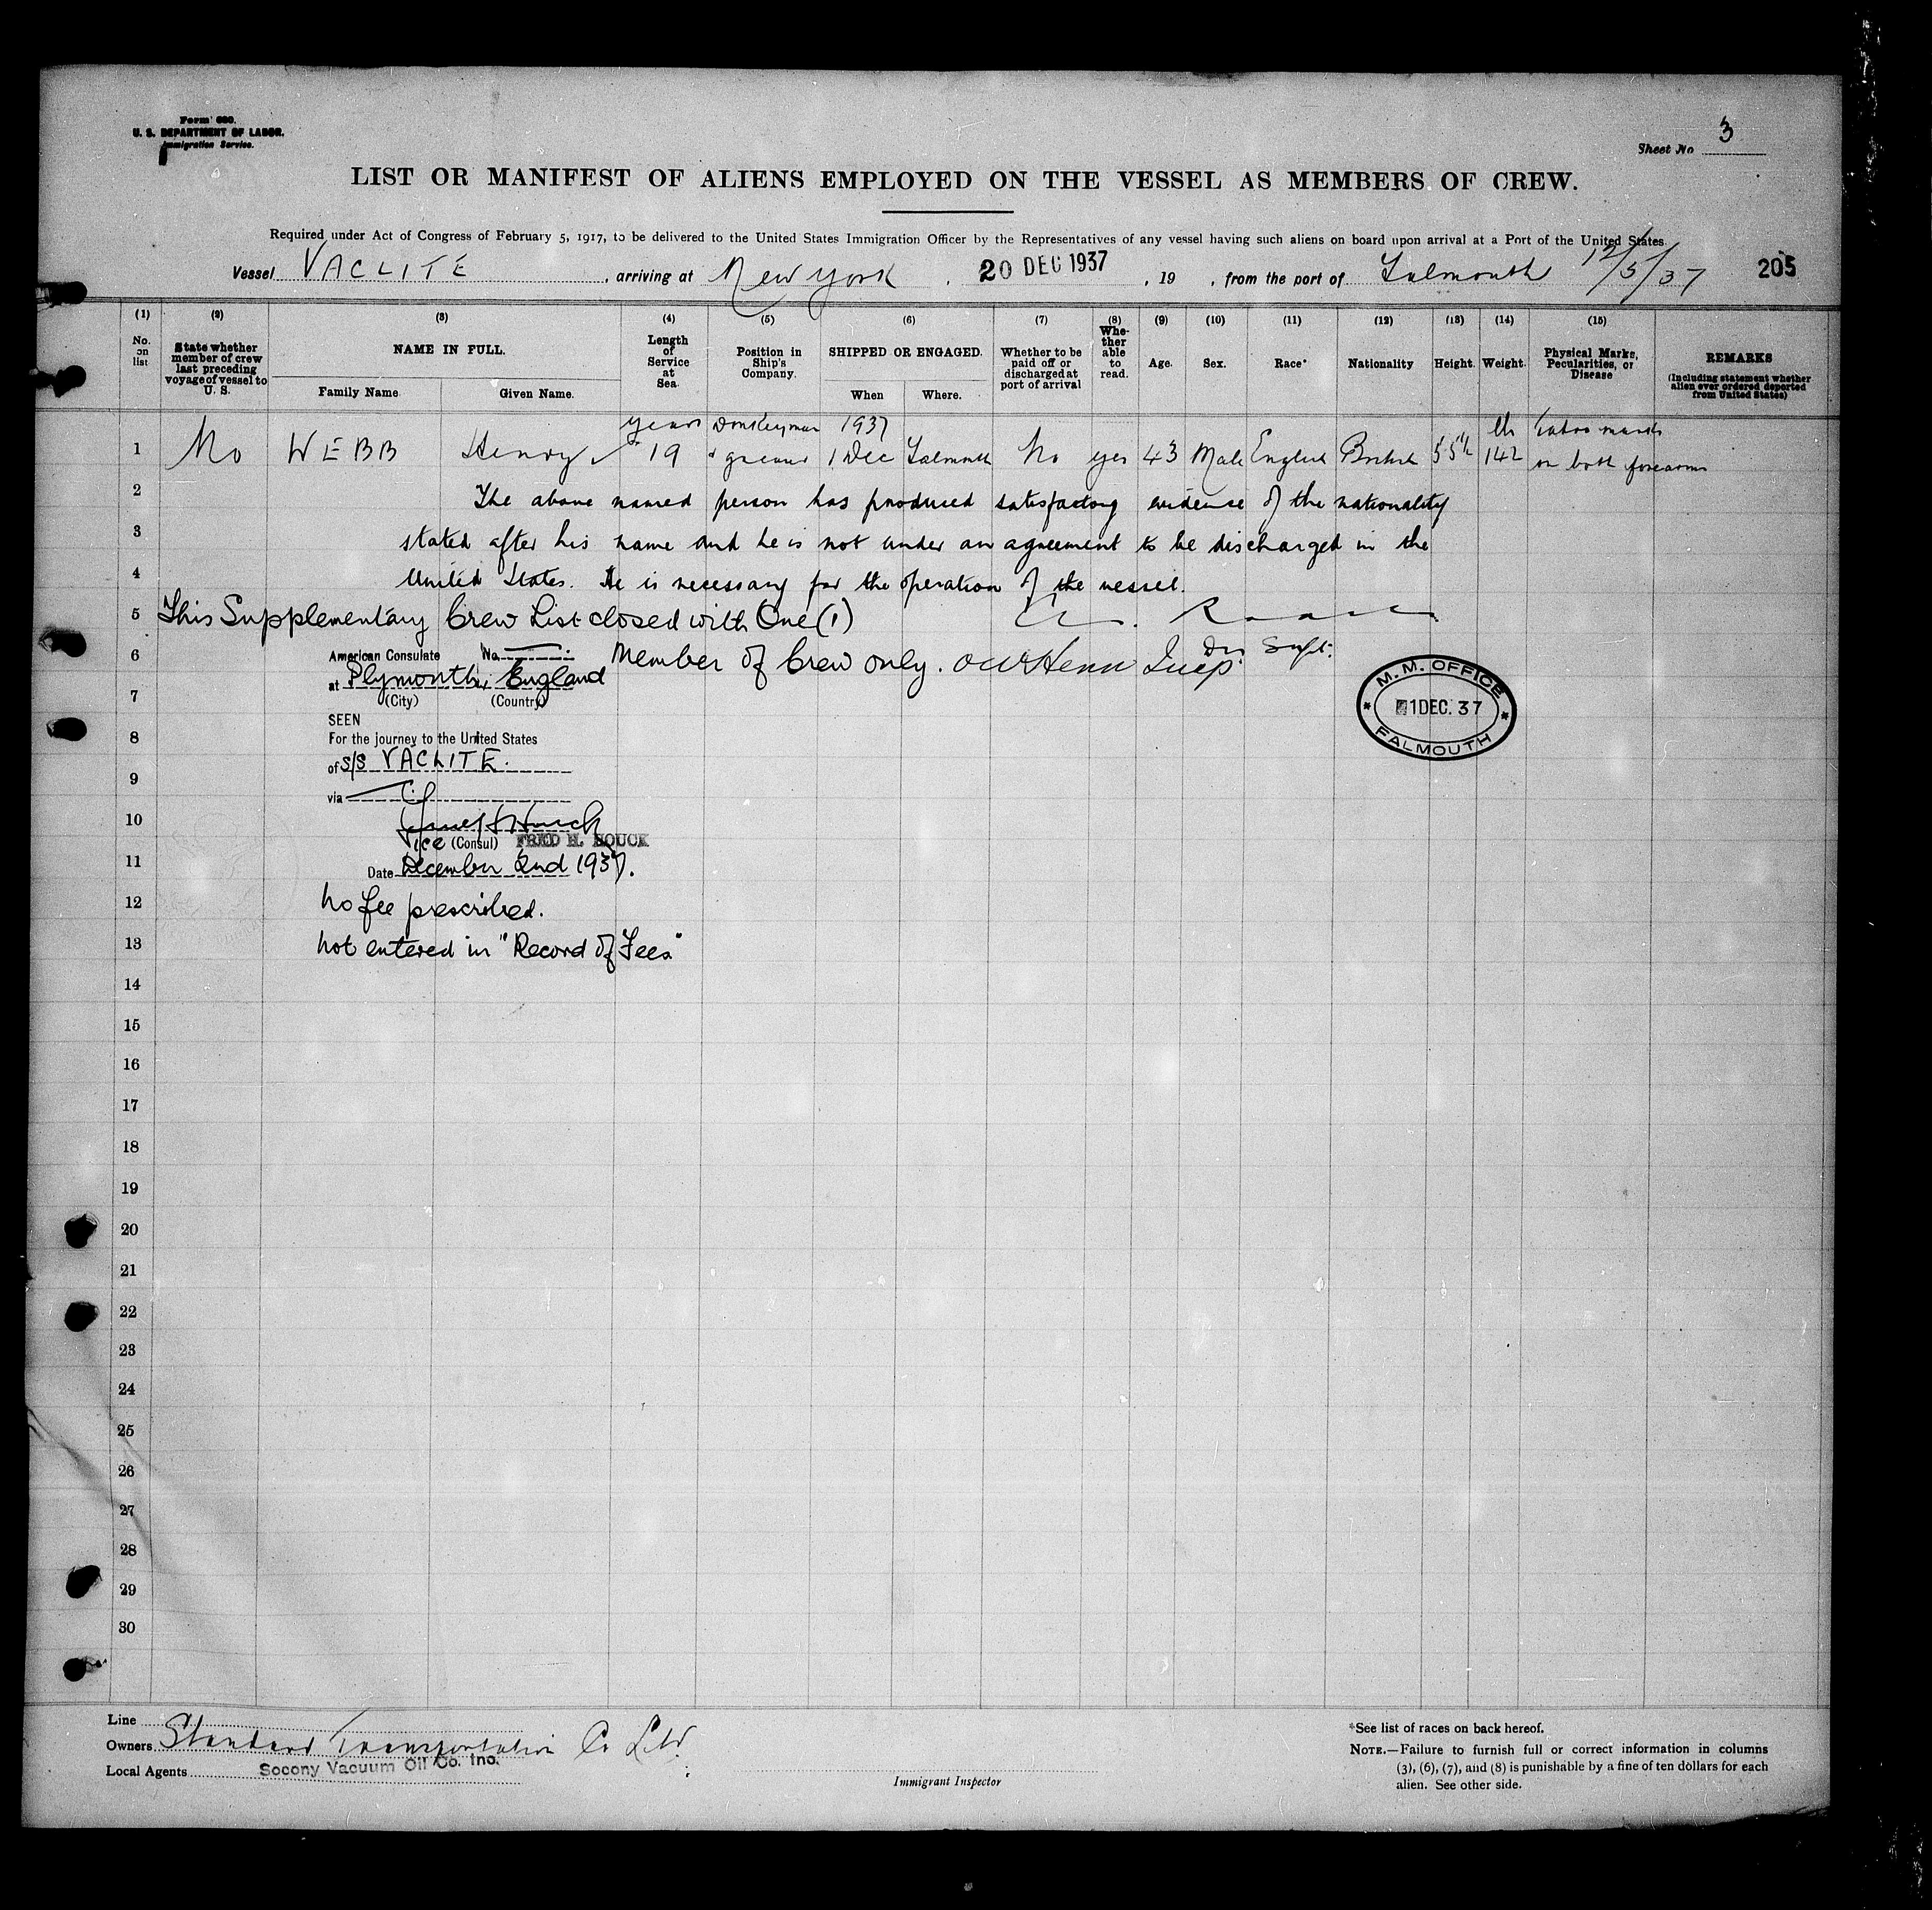 Form 680.
U. S. DEPARTMENT OF LABOR.
Immigration Service.
Sheet No 3
LIST OR MANIFEST OF ALIENS EMPLOYED ON THE VESSEL AS MEMBERS OF CREW.
Required under Act of Congress of February 5, 1917, to be delivered to the United States Immigration Officer by the Representatives of any vessel having such aliens on board upon arrival at a Port of the United States.
Vessel VACLITE, arriving at New York, 20 DEC 1937, 19 , from the port of Falmouth 12/5/37 205
(1) (2) (3) (4) (5) (6) (7) (8) (9) (10) (11) (12) (13) (14) (15)
No. on list
State whether member of crew last preceding voyage of vessel to U. S.
NAME IN FULL.
Family Name
Given Name.
Length of Service at Sea.
Position in Ship's Company.
SHIPPED OR ENGAGED.
When
Where.
Whether to be paid off or discharged at port of arrival
Whe-ther able to read.
Age.
Sex.
Race*
Nationality
Height.
Weight.
Physical Marks, Pecularities, or Disease
REMARKS
(Including statement whether alien ever ordered deported from United States)
years Donkeyman 1937 lb Tatoo marks
1 No WEBB Henry 19 & greaser 1 Dec Falmouth No yes 43 Male English British 5'5½ 142 on both forearms
2 The above named person has produced satisfactory evidence of the nationality
3 stated after his name and he is not under an agreement to be discharged in the
4 United States. He is necessary for the operation of the vessel.
5 This Supplementary Crew List closed with One (1)
6 Member of Crew only.
Supt.
American Consulate No.
at Plymouth, England
(City) (Country)
7
SEEN
8 For the journey to the United States
of S/S VACLITE.
9
via
10
Vice (Consul) FRED H. HOUCK
11 Date December 2nd 1937.
12 No fee prescribed.
13 Not entered in "Record of Fees"
M. M. OFFICE
1 DEC. 37
FALMOUTH
14
15
16
17
18
19
20
21
22
23
24
25
26
27
28
29
30
Line
Owners Standard Transportation Co Ltd.
Local Agents Socony Vacuum Oil Co. Inc.
Immigrant Inspector
*See list of races on back hereof.
NOTE.—Failure to furnish full or correct information in columns
(3), (6), (7), and (8) is punishable by a fine of ten dollars for each
alien. See other side.